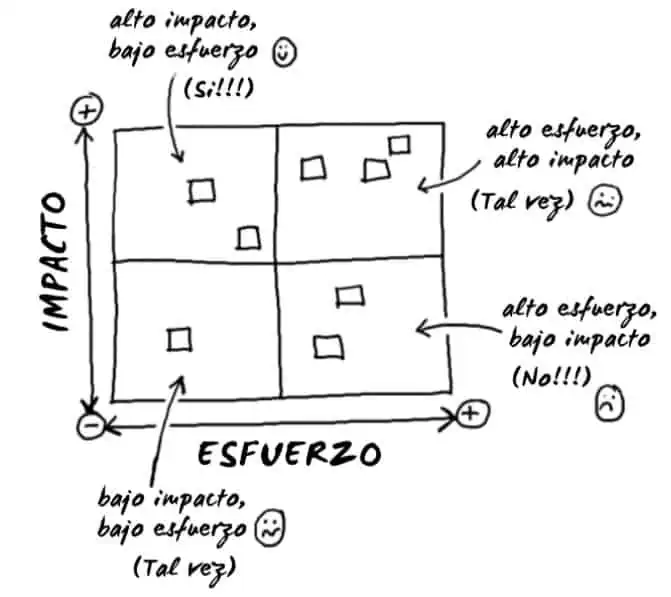 alto impacto,
bajo esfuerzo
(Si!!!)
+
alto esfuerzo,
alto impacto
(Tal vez)
IMPACTO
alto esfuerzo,
bajo impacto
(No!!!)
−
+
ESFUERZO
bajo impacto,
bajo esfuerzo
(Tal vez)